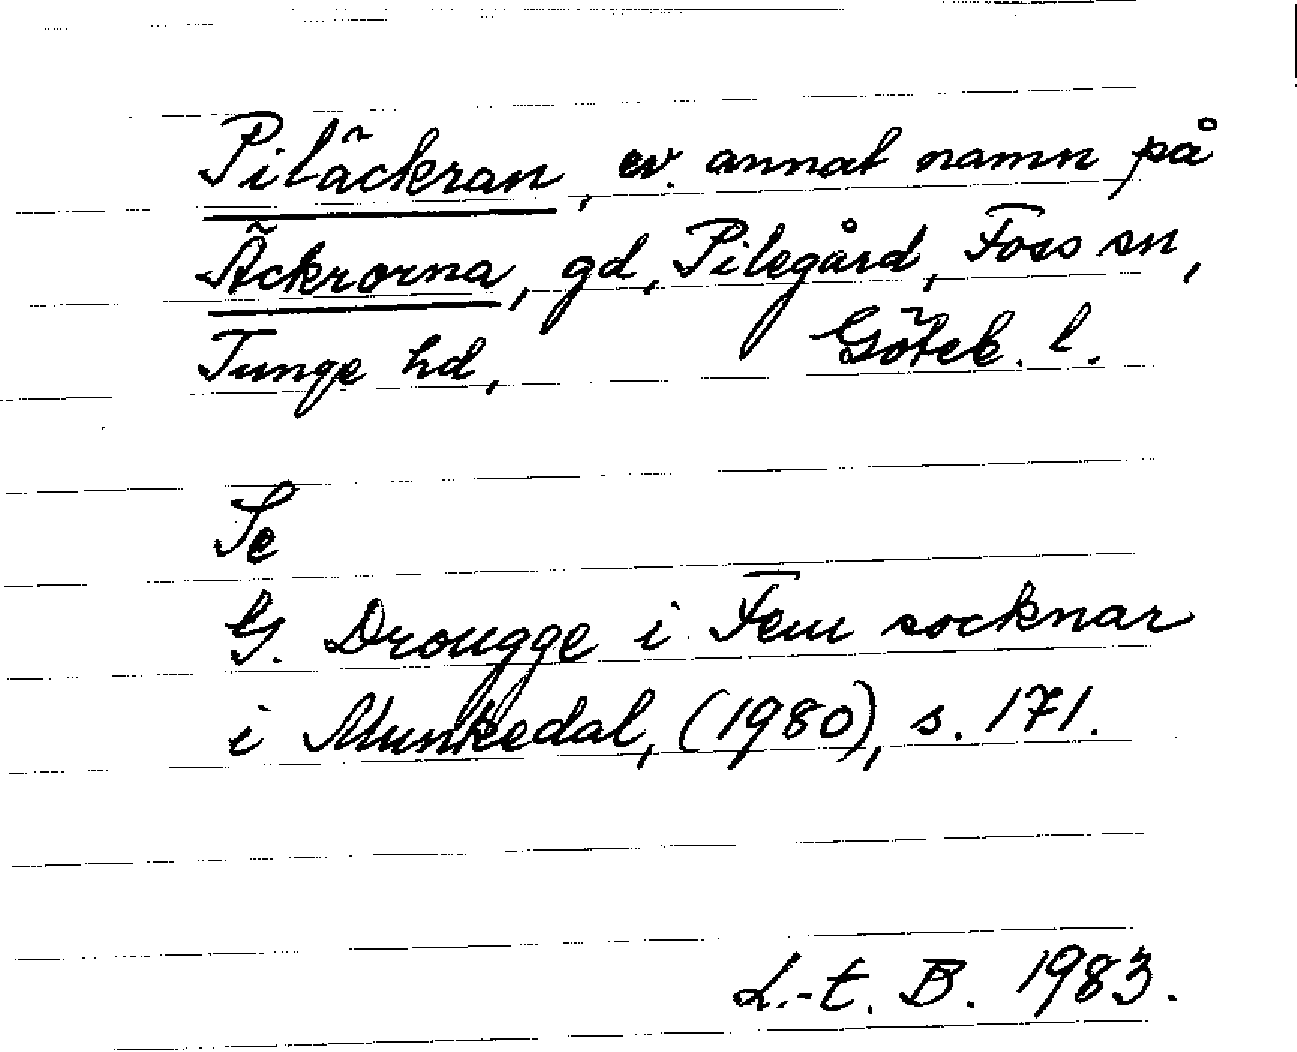 Piläckran, ev. annat namn på
Äckrorna, gd, Pilegård, Foss sn,
Tunge hd, Göteb. l.
Se
G. Drougge i Fem socknar
i Munkedal, (1980), s. 171.
L.-E. B. 1983.